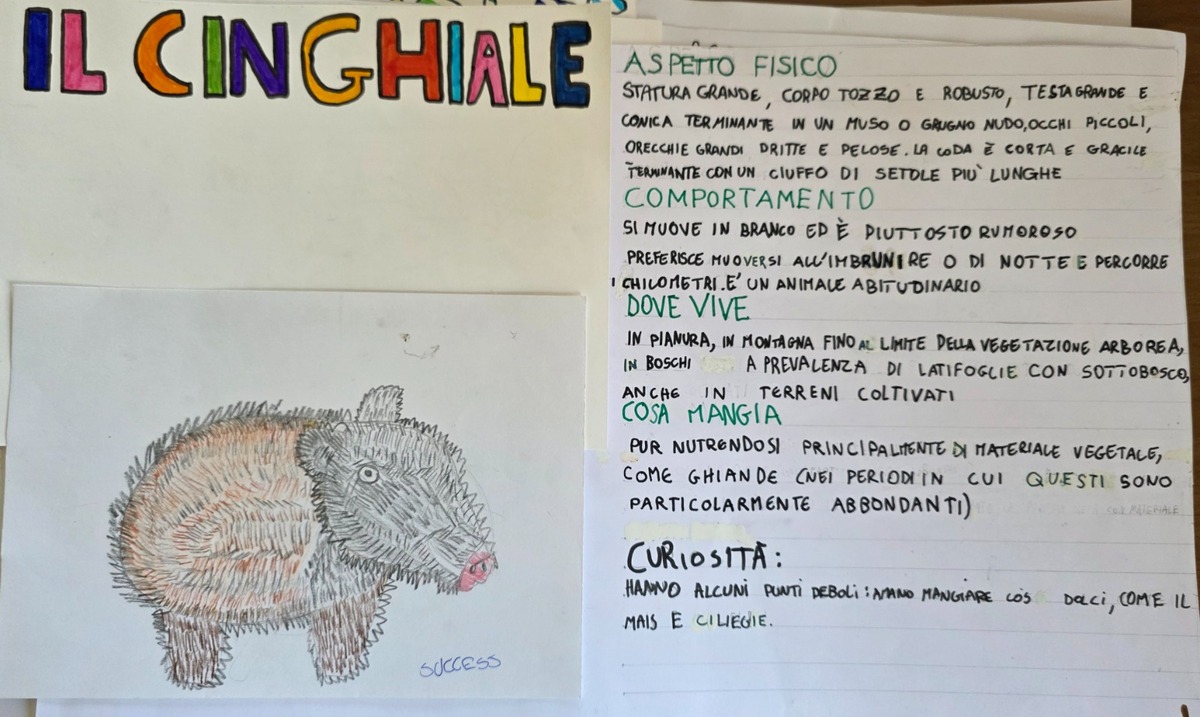 IL CINGHIALE
SUCCESS
ASPETTO FISICO
STATURA GRANDE, CORPO TOZZO E ROBUSTO, TESTA GRANDE E
CONICA TERMINANTE IN UN MUSO O GRUGNO NUDO, OCCHI PICCOLI,
ORECCHIE GRANDI DRITTE E PELOSE. LA CODA È CORTA E GRACILE
TERMINANTE CON UN CIUFFO DI SETOLE PIÙ LUNGHE
COMPORTAMENTO
SI MUOVE IN BRANCO ED È PIUTTOSTO RUMOROSO
PREFERISCE MUOVERSI ALL'IMBRUNIRE O DI NOTTE E PERCORRE
CHILOMETRI. E' UN ANIMALE ABITUDINARIO
DOVE VIVE
IN PIANURA, IN MONTAGNA FINO AL LIMITE DELLA VEGETAZIONE ARBOREA,
IN BOSCHI A PREVALENZA DI LATIFOGLIE CON SOTTOBOSCO,
ANCHE IN TERRENI COLTIVATI
COSA MANGIA
PUR NUTRENDOSI PRINCIPALMENTE DI MATERIALE VEGETALE,
COME GHIANDE (NEI PERIODI IN CUI QUESTI SONO
PARTICOLARMENTE ABBONDANTI)
CURIOSITÀ:
HANNO ALCUNI PUNTI DEBOLI: AMANO MANGIARE COS DOLCI, COME IL
MAIS E CILIEGIE.